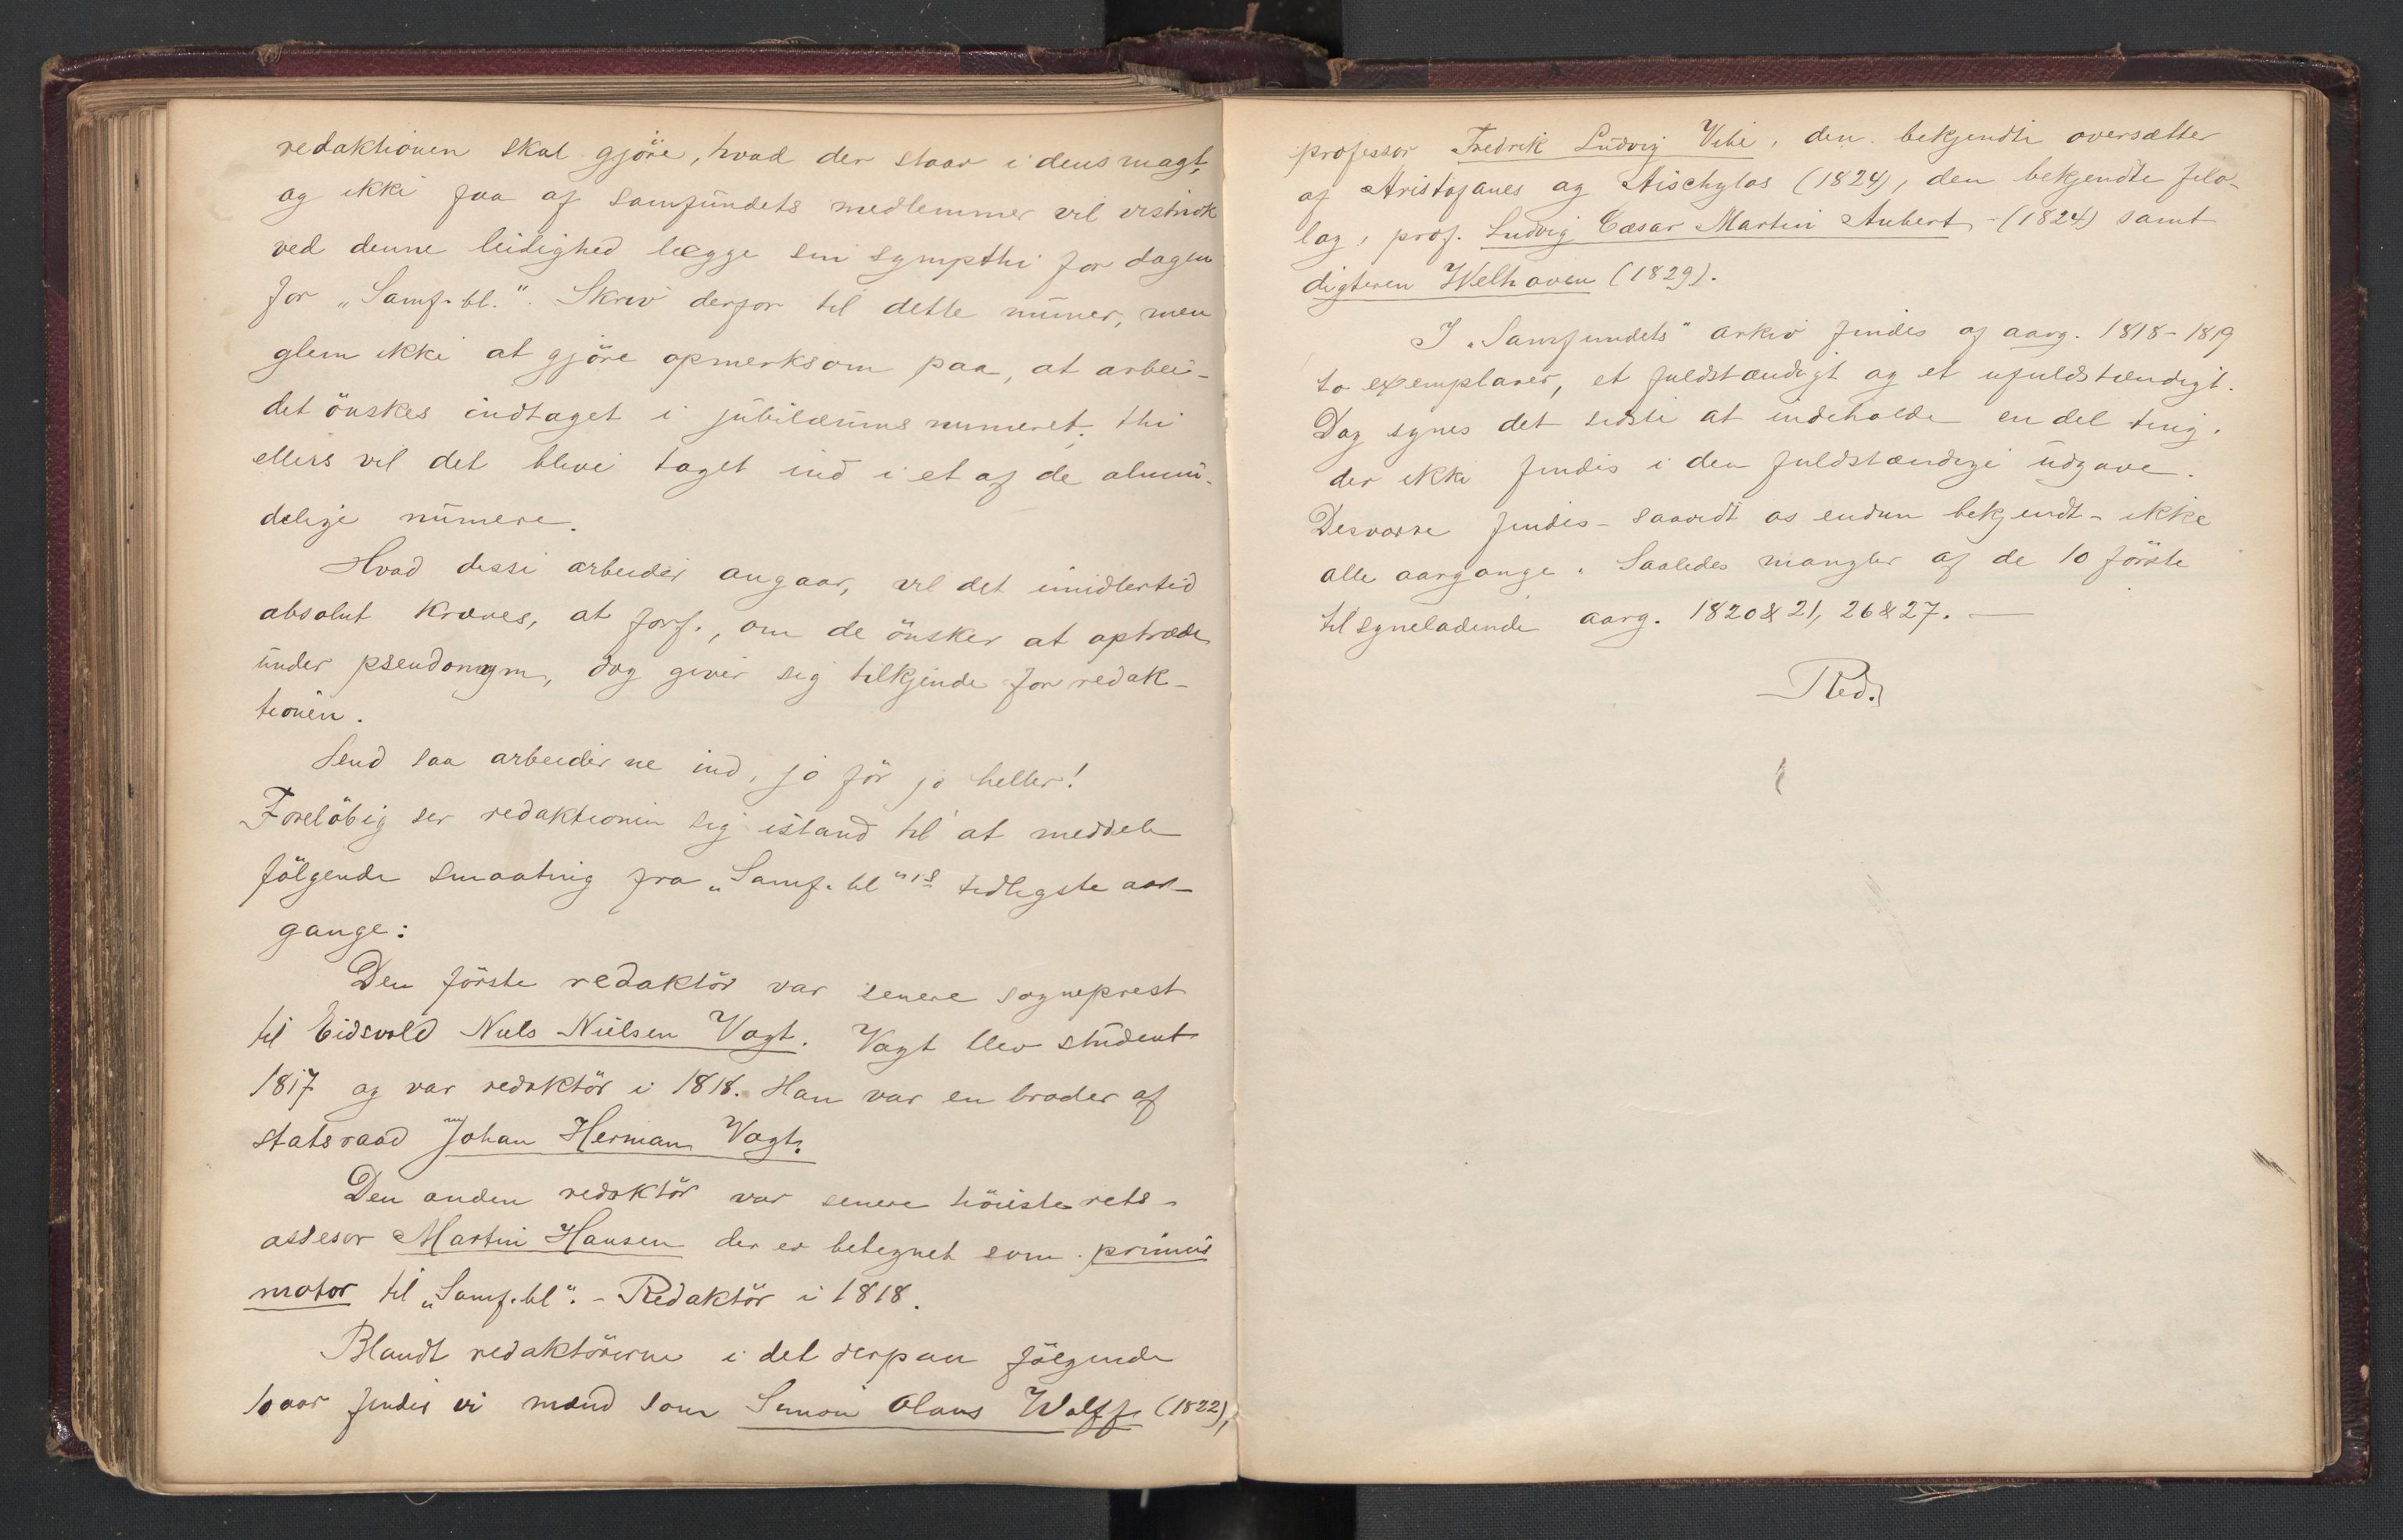 redaktionen skal gjöre, hvad der staar i dens magt,
og ikke faa af samfundets medlemmer vil vistnok
ved denne leilighed lægge sin sympthi for dagen
for „Samf.bl.". Skriv derfor til dette numer, men
glem ikke at gjöre opmerksom paa, at arbei-
det önskes indtaget i jubilæums numeret; thi
ellers vil det blive taget ind i et af de almin-
delige numere.
Hvad disse arbeider angaar, vil det imidlertid
absolut kræves, at forf., om de önsker at optræde
under pseudonym, dog giver sig tilkjende for redak-
tionen.
Send saa arbeiderne ind, jo för jo heller!
Foreløbig ser redaktionen sig istand til at meddele
følgende smaating fra „Samf.bl"s tidligste aar-
gange:
Den förste redaktör var senere sogneprest
til Eidsvold Niels Nielsen Vogt. Vogt blev student
1817 og var redaktör i 1818. Han var en broder af
statsraad Johan Herman Vogt.
Den anden redaktör var senere höiesterets-
assesor Martin Hansen der er betegnet som primus
motor til „Samf.bl". - Redaktör i 1818.
Blandt redaktörerne i det derpaa følgende
10aar findes vi mænd som Simon Olaus Wolff (1822),
professor Fredrik Ludvig Vibe, den bekjendte oversætter
af Aristofanes og Aischylos (1824), den bekjendte filo-
log, prof. Ludvig Cæsar Martin Aubert (1824) samt
digteren Welhaven (1829).
I „Samfundets" arkiv findes af aarg. 1818-1819
to exemplarer, et fuldstændigt og et ufuldstændigt.
Dog synes det sidste at indeholde en del ting,
der ikke findes i den fuldstændige udgave.
Desværre findes - saavidt os endnu bekjendt - ikke
alle aargange. Saaledes mangler af de 10 förste
tilsyneladende aarg. 1820 & 21, 26 & 27. —
Red.